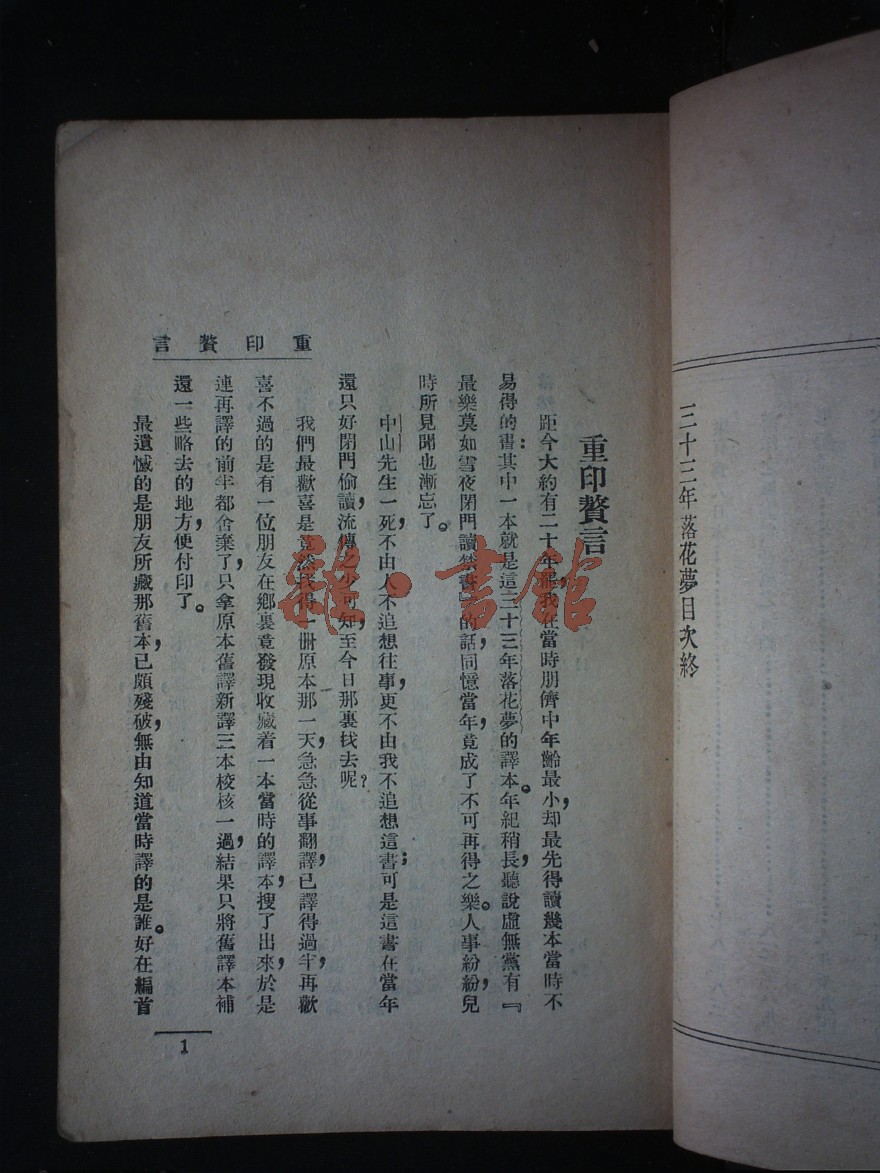 三十三年落花夢目次終
重印贅言
重印贅言
距今大約有二十年罷,我在當時朋儕中年齡最小,却最先得讀幾本當時不
易得的書:其中一本就是這三十三年落花夢的譯本。年紀稍長,聽說虛無黨有『
最樂莫如雪夜閉門讀禁書』的話,回憶當年,竟成了不可再得之樂。人事紛紛,兒
時所見聞也漸忘了。
中山先生一死,不由人不追想往事,更不由我不追想這書;可是這書在當年
還只好閉門偷讀,流傳之少可知,至今日那裏找去呢?
我們最歡喜是竟然找得一册原本那一天,急急從事翻譯,已譯得過半,再歡
喜不過的是有一位朋友在鄉裏竟發現收藏着一本當時的譯本,搜了出來,於是
連再譯的前半都舍棄了,只拿原本舊譯新譯三本校核一過,結果只將舊譯本補
還一些略去的地方,便付印了。
最遺憾的是朋友所藏那舊本,已頗殘破,無由知道當時譯的是誰。好在編首
1
雜·書館